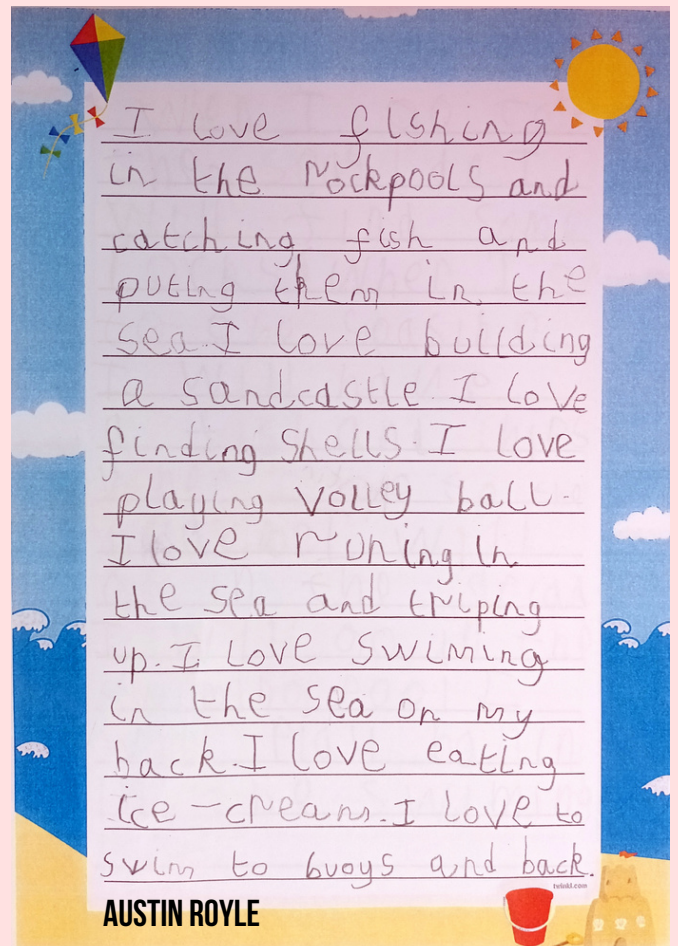 I love fishing
in the rockpools and
catching fish and
puting them in the
sea. I love building
a sandcastle. I love
finding shells. I love
playing volley ball.
I love runing in
the sea and triping
up. I love swiming
in the sea on my
back. I love eating
ice-creams. I love to
swim to buoys and back.
twinkl.com
AUSTIN ROYLE